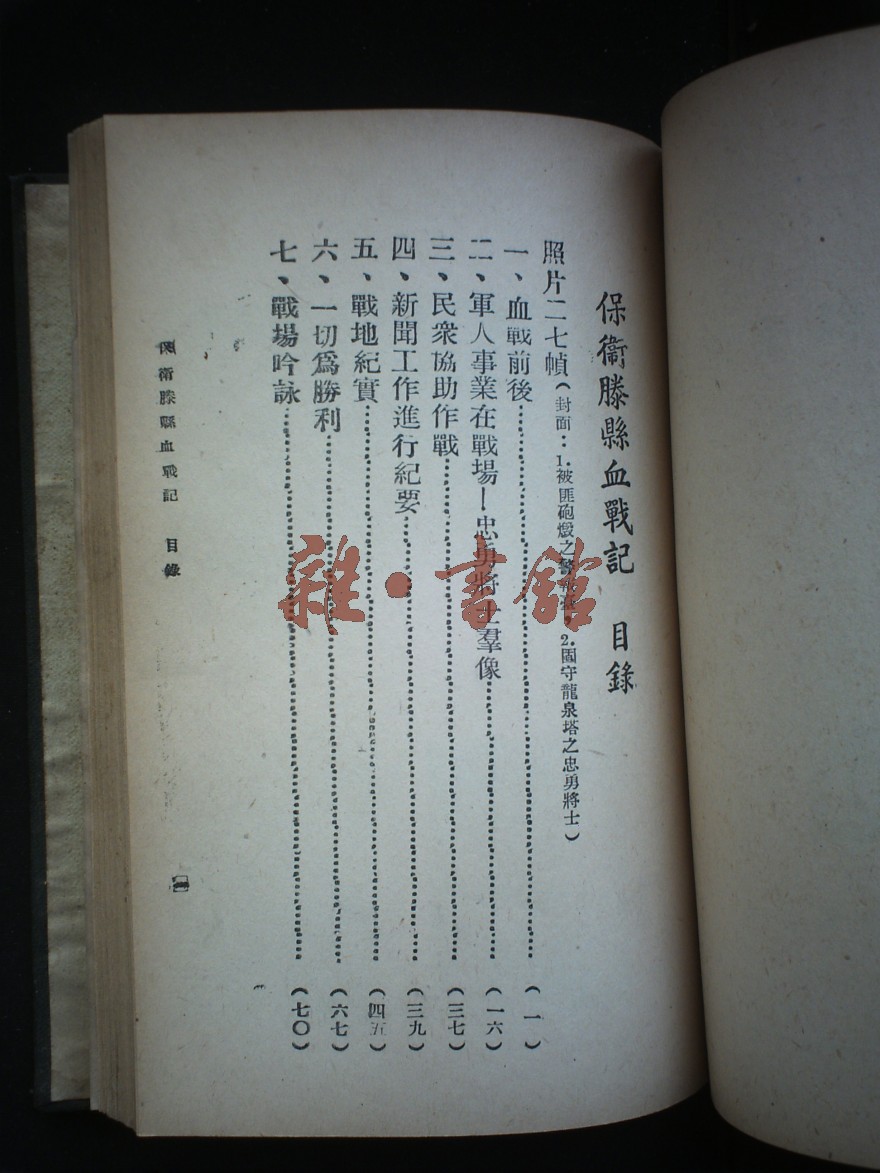 保衞滕縣血戰記　目錄
照片二七幀(封面：1.被匪砲燬之警報 2.固守龍泉塔之忠勇將士)
一、血戰前後……(一)
二、軍人事業在戰場—忠勇將士羣像……(一六)
三、民衆協助作戰……(三七)
四、新聞工作進行紀要……(三九)
五、戰地紀實……(四五)
六、一切爲勝利……(六七)
七、戰場吟詠……(七〇)
保衞滕縣血戰記　目錄
雜·書館